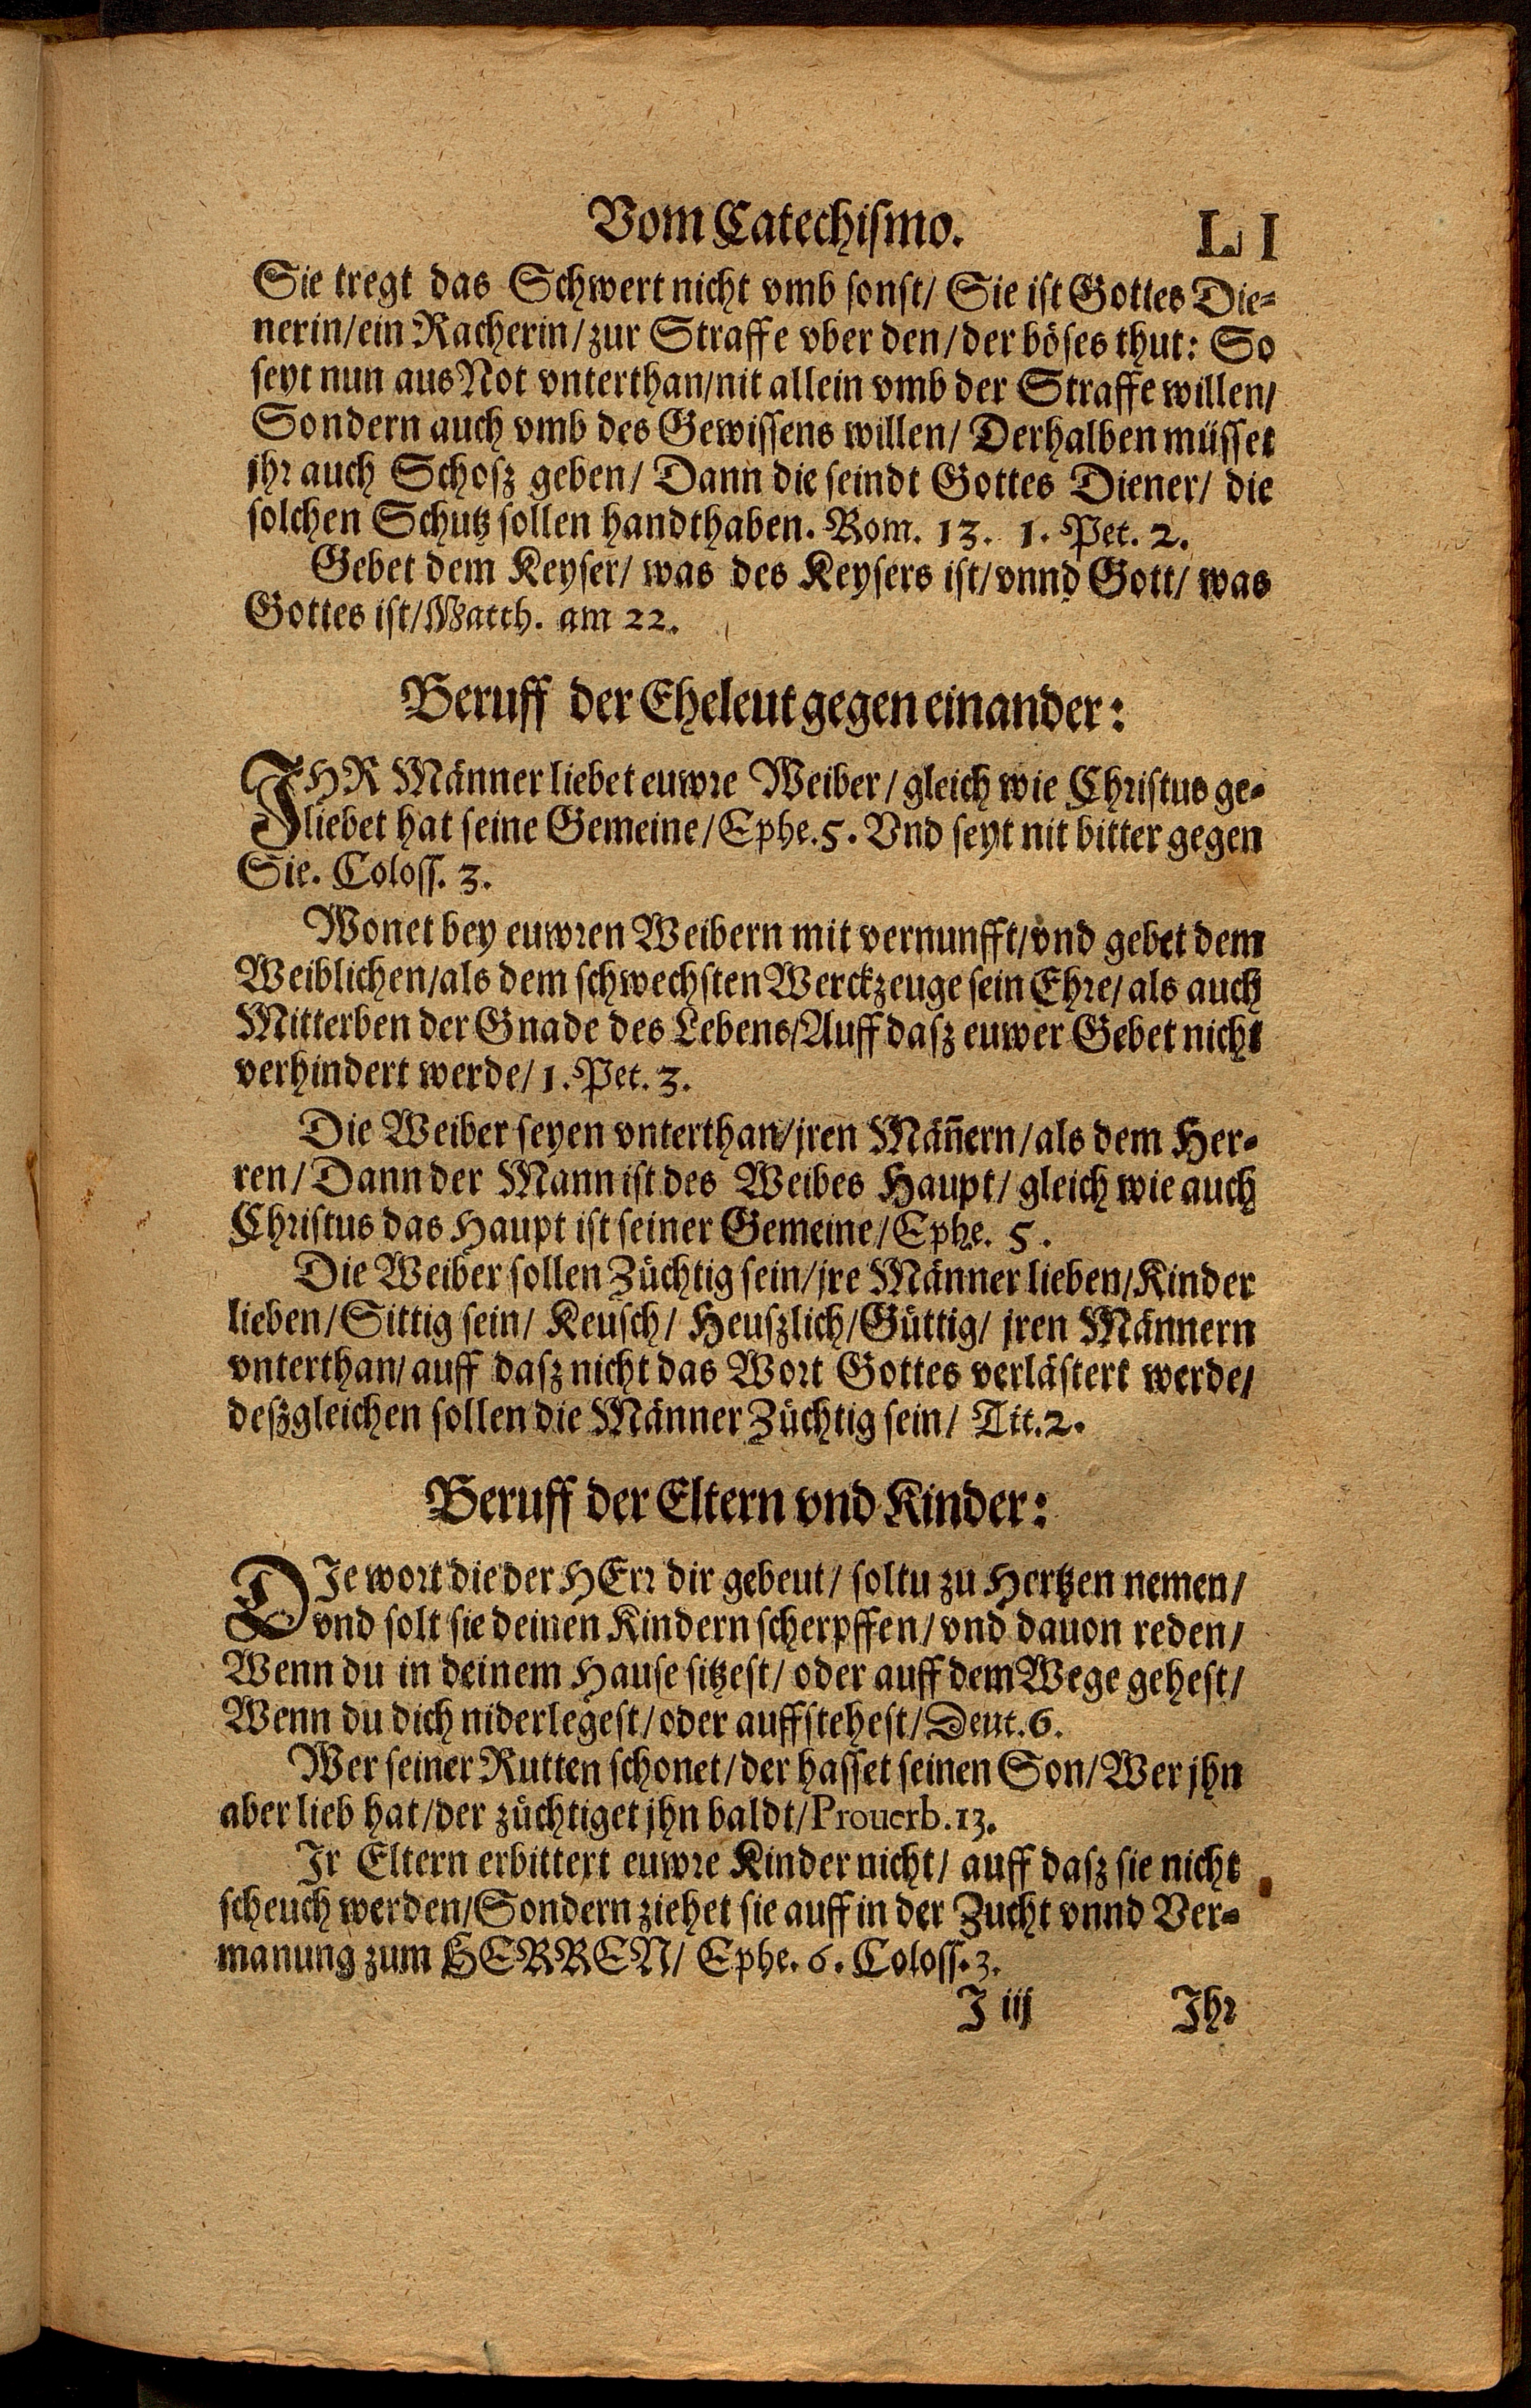 Vom Catechismo. LI
Sie tregt das Schwert nicht vmb sonst/ Sie ist Gottes Die-
nerin/ein Racherin/zur Straffe vber den/der böses thut: So
seyt nun aus Not vnterthan/nit allein vmb der Straffe willen/
Sondern auch vmb des Gewissens willen/ Derhalben müsset
jhr auch Schosz geben/ Dann die seindt Gottes Diener/ die
solchen Schutz sollen handthaben. Rom. 13. 1. Pet. 2.
Gebet dem Keyser/ was des Keysers ist/vnnd Gott/ was
Gottes ist/Matth. am 22.
Beruff der Eheleut gegen einander:
IHR Männer liebet euwre Weiber/gleich wie Christus ge-
liebet hat seine Gemeine/Ephe.5. Vnd seyt nit bitter gegen
Sie. Coloss. 3.
Wonet bey euwren Weibern mit vernunfft/vnd gebet dem
Weiblichen/als dem schwechsten Werckzeuge sein Ehre/als auch
Mitterben der Gnade des Lebens/Auff dasz euwer Gebet nicht
verhindert werde/1. Pet. 3.
Die Weiber seyen vnterthan/jren Män̄ern/als dem Her-
ren/Dann der Mann ist des Weibes Haupt/gleich wie auch
Christus das Haupt ist seiner Gemeine/Ephe. 5.
Die Weiber sollen Züchtig sein/jre Männer lieben/Kinder
lieben/Sittig sein/ Keusch/ Heuszlich/Güttig/ jren Männern
vnterthan/auff dasz nicht das Wort Gottes verlästert werde/
deszgleichen sollen die Männer Züchtig sein/ Tit.2.
Beruff der Eltern vnd Kinder:
DIe wort die der HErr dir gebeut/ soltu zu Hertzen nemen/
vnd solt sie deinen Kindern scherpffen/vnd dauon reden/
Wenn du in deinem Hause sitzest/oder auff dem Wege gehest/
Wenn du dich niderlegest/oder auffstehest/Deut.6.
Wer seiner Rutten schonet/der hasset seinen Son/Wer jhn
aber lieb hat/der züchtiget jhn baldt/Prouerb.13.
Ir Eltern erbittert euwre Kinder nicht/ auff dasz sie nicht
scheuch werden/Sondern ziehet sie auff in der Zucht vnnd Ver-
manung zum HERREN/ Ephe. 6. Coloss.3.
I iij Ihr